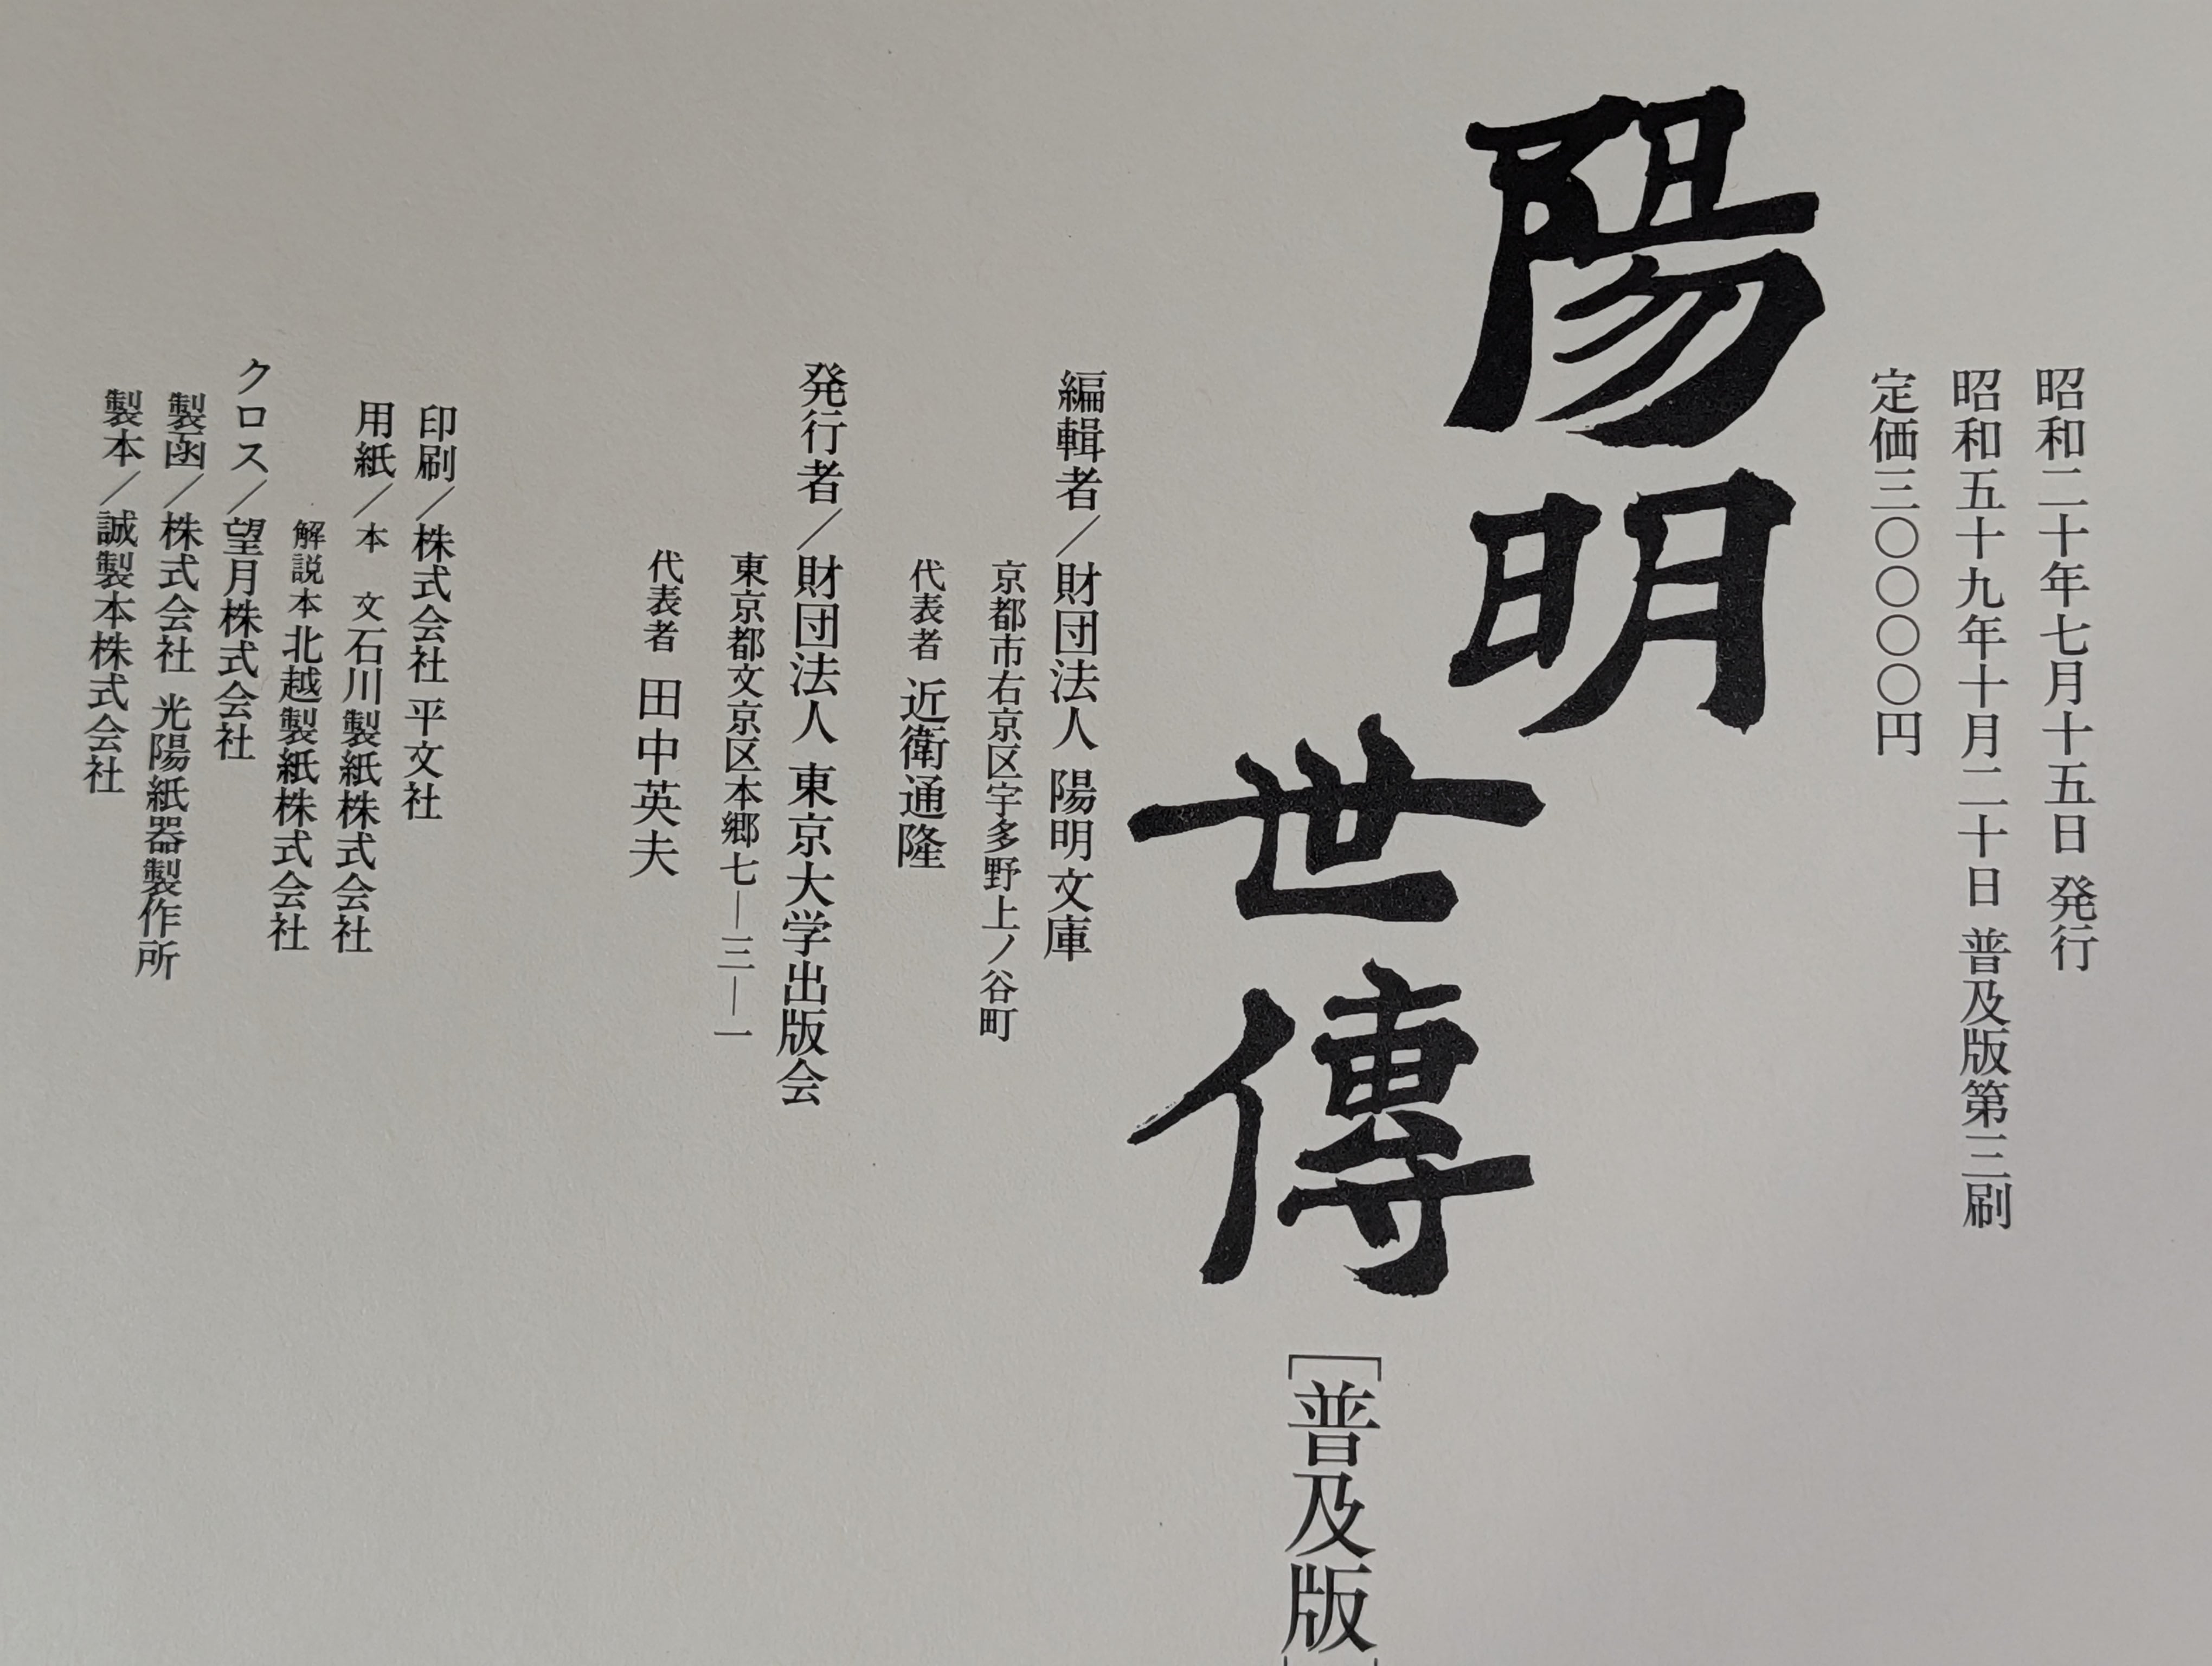 昭和二十年七月十五日 発行
昭和五十九年十月二十日 普及版第三刷
定価三〇〇〇〇円
陽明
世傳
［普及版］
編輯者／財団法人 陽明文庫
京都市右京区宇多野上ノ谷町
代表者 近衛通隆
発行者／財団法人 東京大学出版会
東京都文京区本郷七―三―一
代表者 田中英夫
印刷／株式会社 平文社
用紙／本 文 石川製紙株式会社
解説本 北越製紙株式会社
クロス／望月株式会社
製函／株式会社 光陽紙器製作所
製本／誠製本株式会社